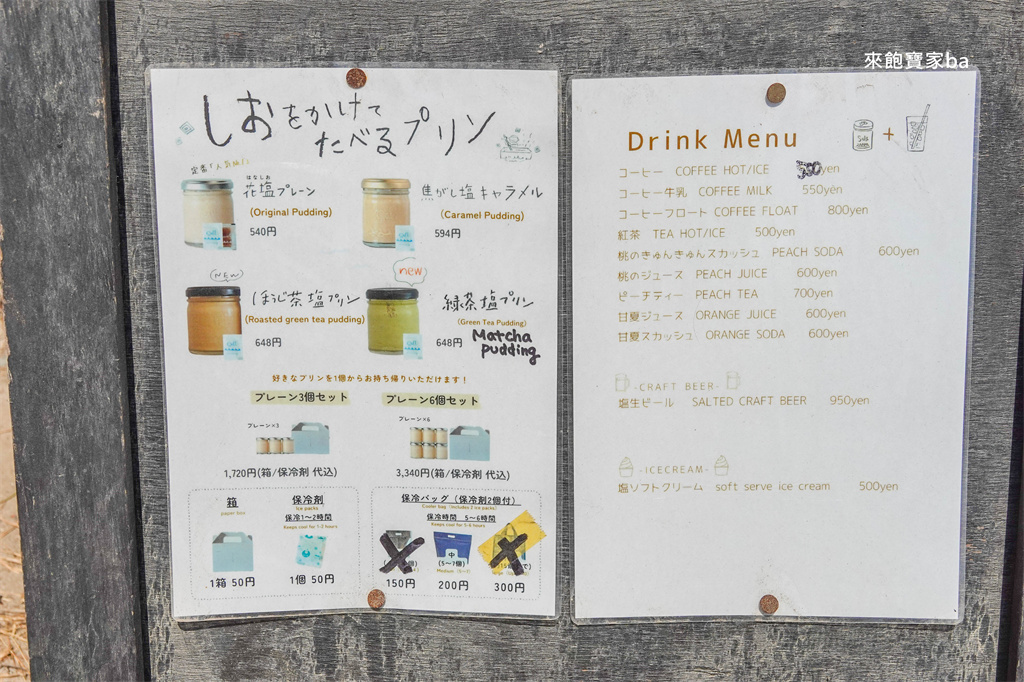 來飽寶家ba
しおをかけて
たべるプリン
定番「人気No.1」
はなしお
花塩プレーン
(Original Pudding)
540円
焦がし塩キャラメル
(Caramel Pudding)
594円
(NEW)
ほうじ茶塩プリン
(Roasted green tea pudding)
648円
new
緑茶塩プリン
(Green Tea Pudding)
Matcha
pudding
648円
好きなプリンを1個からお持ち帰りいただけます!
プレーン3個セット
プレーン×3
1,720円(箱/保冷剤 代込)
プレーン6個セット
プレーン×6
3,340円(箱/保冷剤 代込)
箱
paper box
1箱 50円
保冷剤
Ice packs
保冷1〜2時間
Keeps cool for 1-2 hours
1個 50円
保冷バッグ(保冷剤2個付)
Cooler bag (Includes 2 ice packs)
保冷時間 5〜6時間
Keeps cool for 5-6 hours
150円
中
(5〜7個)
200円
300円
Drink Menu
コーヒー COFFEE HOT/ICE yen
コーヒー牛乳 COFFEE MILK 550yen
コーヒーフロート COFFEE FLOAT 800yen
紅茶 TEA HOT/ICE 500yen
桃のきゅんきゅんスカッシュ PEACH SODA 600yen
桃のジュース PEACH JUICE 600yen
ピーチティー PEACH TEA 700yen
甘夏ジュース ORANGE JUICE 600yen
甘夏スカッシュ ORANGE SODA 600yen
-CRAFT BEER-
塩生ビール SALTED CRAFT BEER 950yen
-ICECREAM-
塩ソフトクリーム soft serve ice cream 500yen